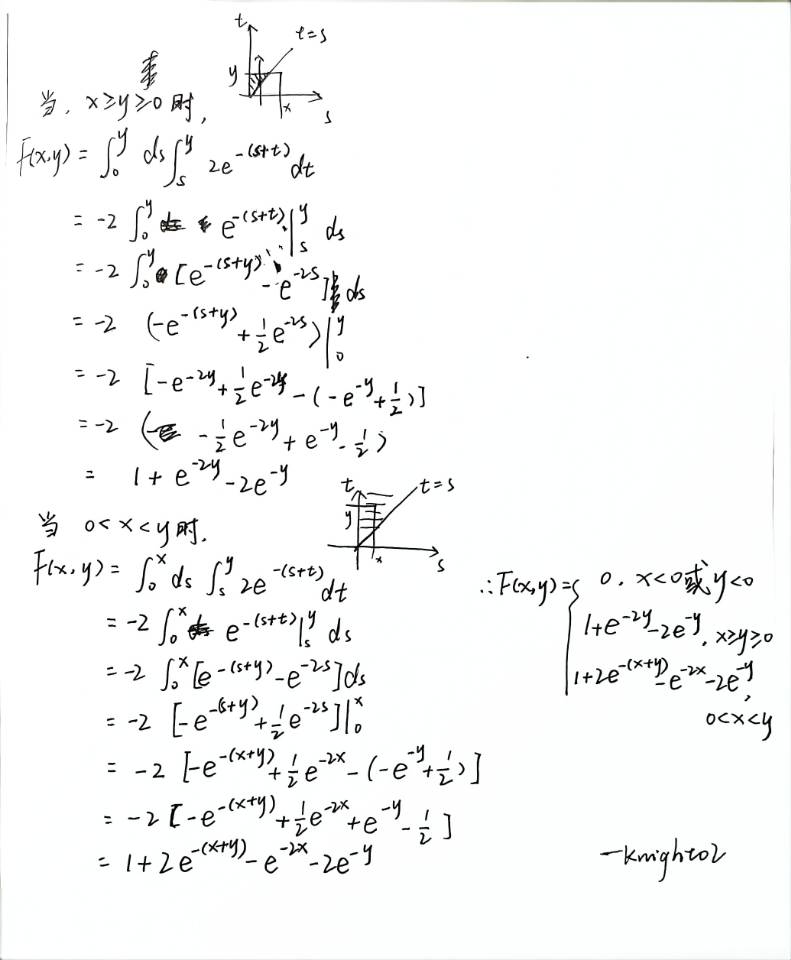 t
t=s
y
x
s
当, x≥y≥0 时,
F(x,y) = ∫₀^y ds ∫_s^y 2e^{-(s+t)} dt
= -2 ∫₀^y e^{-(s+t)} |_s^y ds
= -2 ∫₀^y [e^{-(s+y)} - e^{-2s}] ds
= -2 (-e^{-(s+y)} + ½e^{-2s}) |₀^y
= -2 [-e^{-2y} + ½e^{-2y} - (-e^{-y} + ½)]
= -2 (-½e^{-2y} + e^{-y} - ½)
= 1 + e^{-2y} - 2e^{-y}
t
t=s
y
x
s
当 0<x<y时,
F(x,y) = ∫₀^x ds ∫_s^y 2e^{-(s+t)} dt
= -2 ∫₀^x e^{-(s+t)} |_s^y ds
= -2 ∫₀^x [e^{-(s+y)} - e^{-2s}] ds
= -2 [-e^{-(s+y)} + ½e^{-2s}] |₀^x
= -2 [-e^{-(x+y)} + ½e^{-2x} - (-e^{-y} + ½)]
= -2 [-e^{-(x+y)} + ½e^{-2x} + e^{-y} - ½]
= 1 + 2e^{-(x+y)} - e^{-2x} - 2e^{-y}
∴F(x,y) = { 0, x<0或y<0
1+e^{-2y}-2e^{-y}, x≥y≥0
1+2e^{-(x+y)}-e^{-2x}-2e^{-y},
0<x<y
—knight02